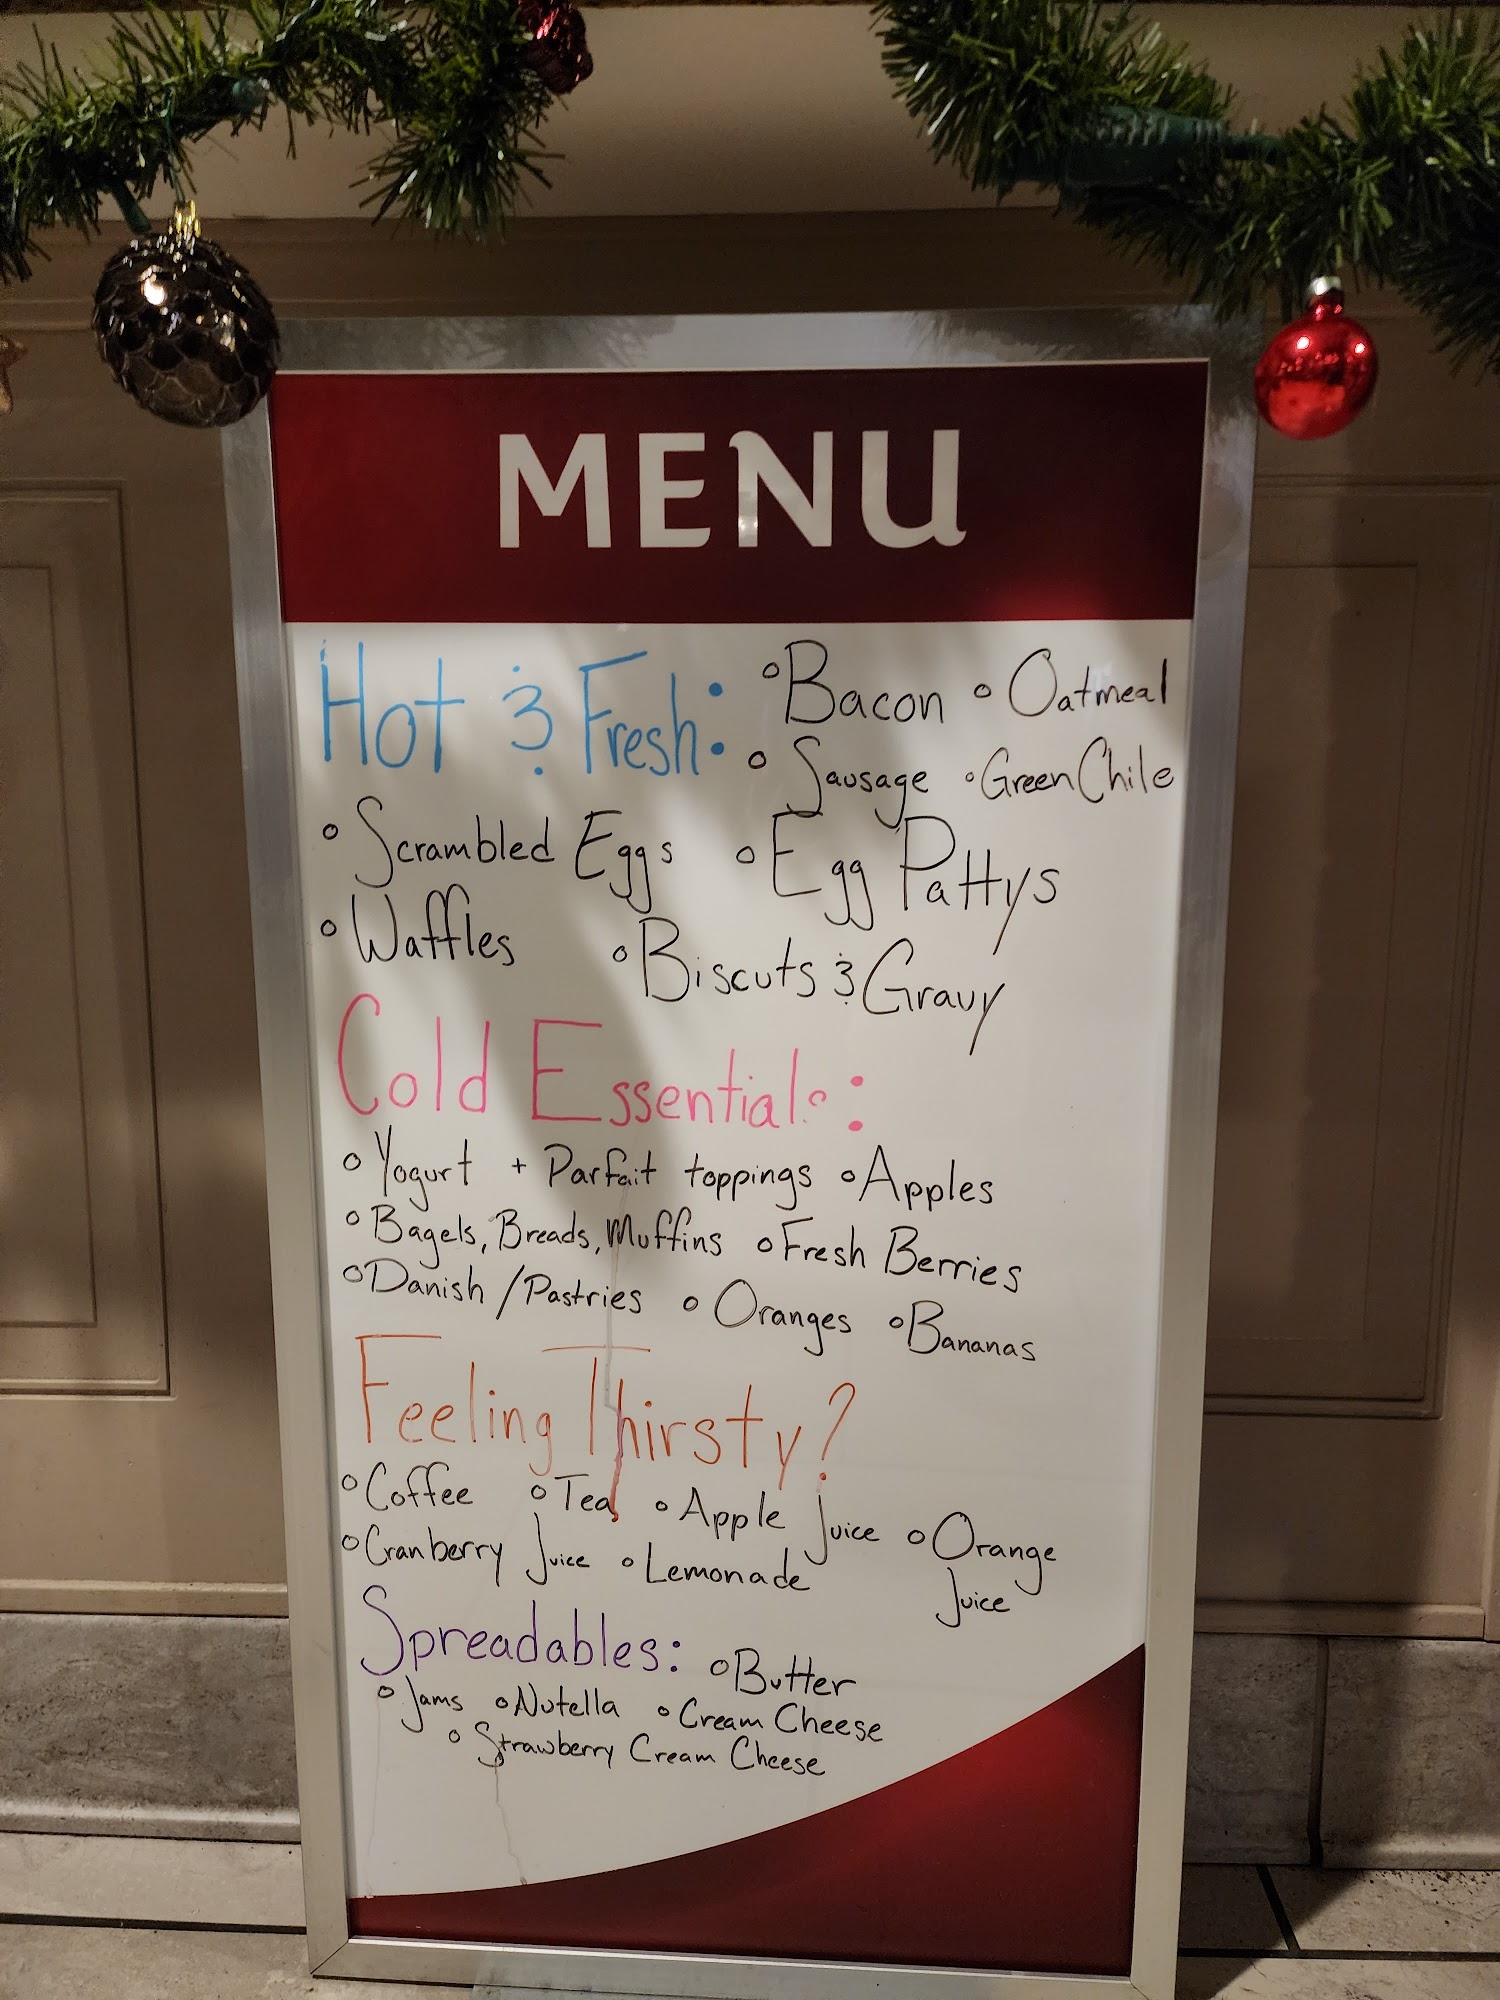 MENU
Hot & Fresh: °Bacon °Oatmeal
°Sausage °Green Chile
°Scrambled Eggs °Egg Pattys
°Waffles °Biscuts & Gravy
Cold Essentials:
°Yogurt + Parfait toppings °Apples
°Bagels, Breads, Muffins °Fresh Berries
°Danish/Pastries °Oranges °Bananas
Feeling Thirsty?
°Coffee °Tea °Apple Juice °Orange
°Cranberry Juice °Lemonade Juice
Spreadables: °Butter
°Jams °Nutella °Cream Cheese
°Strawberry Cream Cheese